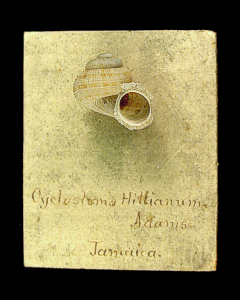 Cyclostoma Hillianum.
Adams
Jamaica.